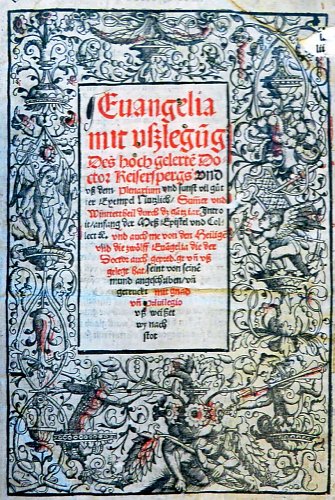 Euangelia
mit vßlegũg
Des hoch gelertẽ Do
ctor Keiserspergs Vnd
vß dem Plenarium vnd sunst vil gůt
ter Exempel Nutzlich/ Sumer vnd
Winterteil durch dz gãtz iar. Intro
it/anfang der Meß Epistel vnd Col
lect ꝛc. vnd auch me von den Heiligẽ
vnd die zwölff Euãgelia die der
Doctor auch geprediget vñ vß
gelegt hat. seint von seinẽ
mund angeschriben/vñ
getruckt mit gnad
vñ Priuilegio
vß weißet
wy nach
stot